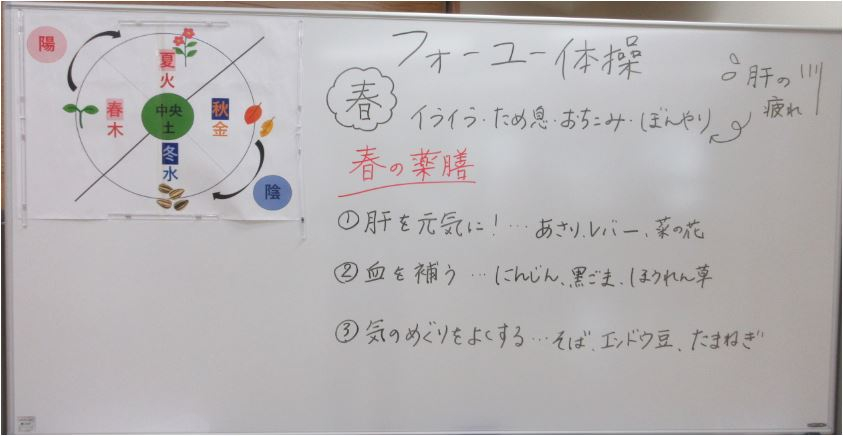 陽
夏
火
春
木
中央
土
秋
金
冬
水
陰
フォーユー体操
春
イライラ・ため息・おちこみ・ぼんやり
肝の
疲れ
春の薬膳
①肝を元気に！…あさり、レバー、菜の花
②血を補う…にんじん、黒ごま、ほうれん草
③気のめぐりをよくする…そば、エンドウ豆、たまねぎ